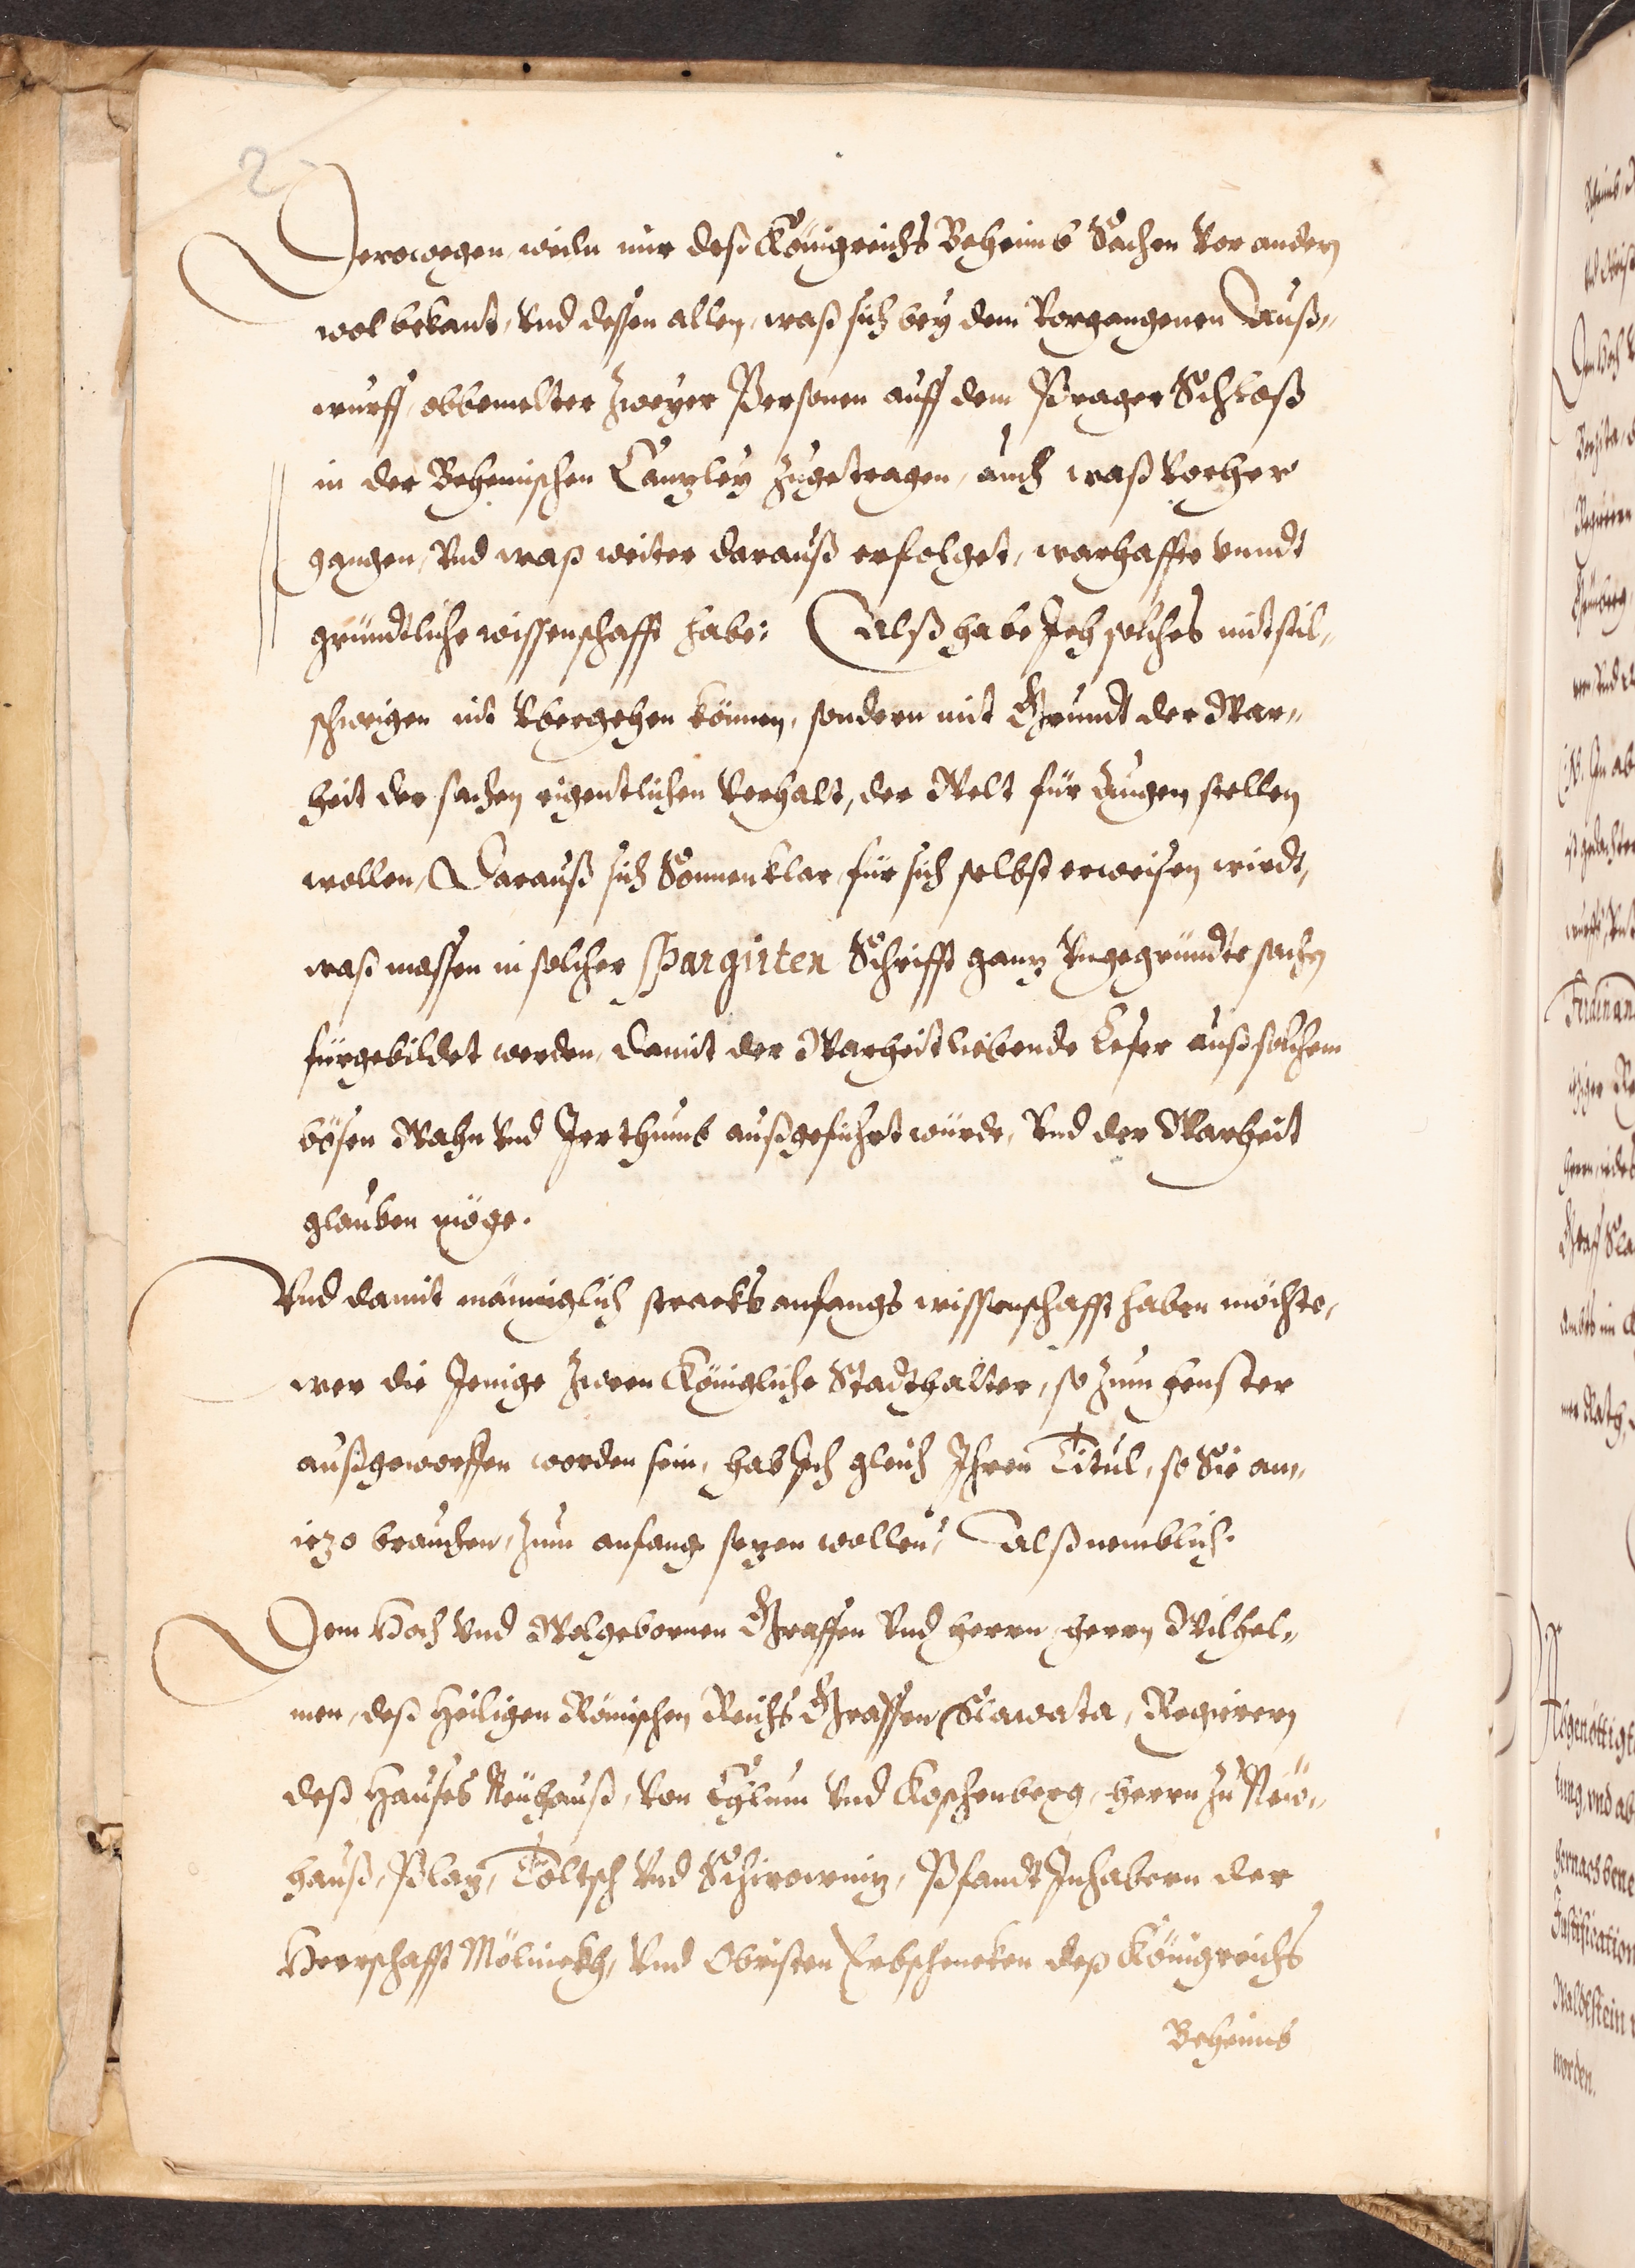 2
Derowegen, weiln mir deß Königreichs Beheimb Sachen vor andern
wol bekant, vnd dessen allen, waß sich bey dem vorgangenen Auß„
wurff, obbemelter zweyer Personen auff dem Prager Schloß
in der Behemischen Canzley zugetragen, auch waß vorher
gangen, vnd waß weiter darauß erfolget, warhaffte vnndt
gründtliche wissenschafft habe: Alß habe Ich solches mit stil„
schweigen nit vbergehen können, sondern mit Grundt der War„
heit der sachen eigentlichen verhalt, der Welt für Augen stellen
wollen, Darauß sich Sonnenklar, für sich selbst erweisen wirdt,
waß massen in solcher spargirten Schrifft ganz vngegründte sachen
fürgebildet werden, damit der Warheit liebende Leser auß solchem
bösen Wahn vnd Jrrthumb außgeführt würde, vnd der Warheit
glauben möge.
Vnd damit männiglich stracks anfangs wissenschafft haben möchte,
wer die Jenige zween Königliche Stadthalter, so zum fenster
außgeworffen worden sein, hab Ich gleich Ihren Titul, so Sie an„
iezo brauchen, zum anfang sezen wollen, Alß nemblich.
Dem Hoch vnd Wolgebornen Graffen vnd Herrn, Herrn Wilhel„
men, deß Heiligen Römischen Reichs Graffen Slawata, Regierern
deß Hauses Neühauß, von Chlum vnd Koschenberg, Herrn zu Neü„
hauß, Plaz, Töltsch vnd Schirowniz, Pfandt Inhabern der
Herrschafft Mölnickh, vnd Obristen Erbschencken deß Königreichs
Beheimb